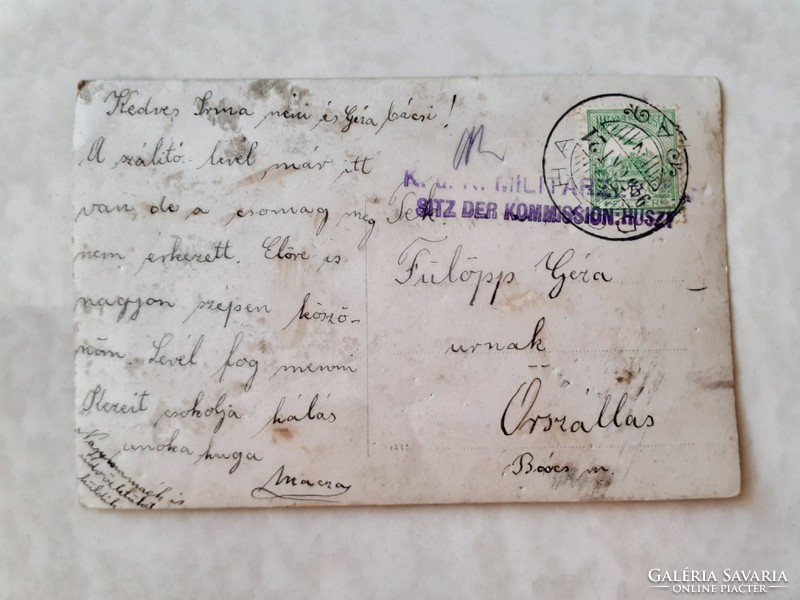 Kedves Irma néni és Géza bácsi!
A szálitó levél már itt
van, de a csomag még
nem erkezett. Előre is
nagyon szépen köszö-
nöm. Levél fog menni
Kezeit csokolja hálás
unoka huga
Macza
Nagymamáék is
üdvözletüket
küldik
K. u. K. MILITÄR
SITZ DER KOMMISSION: HUSZT
Tek.
Fülöpp Géza
urnak
Őrszállás
Bács m.
GALÉRIA SAVARIA
ONLINE PIACTÉR